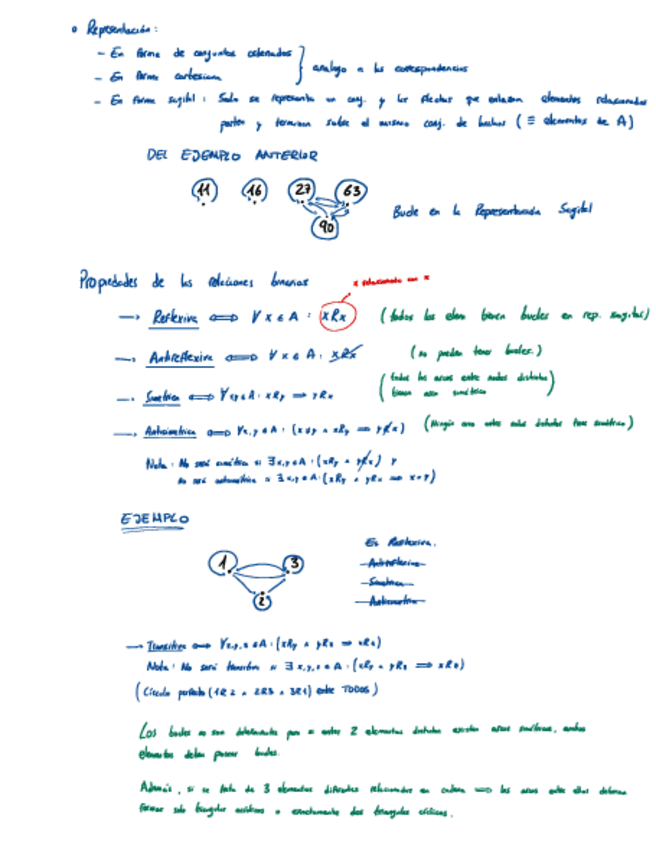 • Representación:
– En forma de conjuntos ordenados
– En forma cartesiana
} analogo a las correspondencias
– En forma sagital: Solo se representa un conj. y las flechas que enlazan elementos relacionados
parten y terminan sobre el mismo conj. de bucles (≡ elementos de A)
DEL EJEMPLO ANTERIOR
11 16 27 63
90
Bucle en la Representación Sagital
Propiedades de las relaciones binarias
x relacionado con x
→ Reflexiva ⟺ ∀x∈A: xRx (todos los elem tienen bucles en rep. sagital)
→ Antireflexiva ⟺ ∀x∈A: xR̸x (no pueden tener bucles.)
→ Simétrica ⟺ ∀x,y∈A: xRy ⟹ yRx (todos los arcos entre nodos distintos
tienen arco simétrico)
→ Antisimetrica ⟺ ∀x,y∈A: (x≠y ∧ xRy ⟹ yR̸x) (Ningún arco entre nodos distintos tiene simétrico)
Nota: No será simétrica si ∃x,y∈A: (xRy ∧ yR̸x) y
no será antisimétrica si ∃x,y∈A: (xRy ∧ yRx x≠y)
EJEMPLO
1 3
2
Es Reflexiva.
Antireflexiva
Simétrica
Antisimetrica
→ Transitiva ⟺ ∀x,y,z∈A: (xRy ∧ yRz ⟹ xRz)
Nota: No será transitiva si ∃x,y,z∈A: (xRy ∧ yRz ⟹ xR̸z)
(Círculo perfecto (1R2 ∧ 2R3 ∧ 3R1) entre TODOS)
Los bucles no son determinantes pero si entre 2 elementos distintos existen arcos simétricos, ambos
elementos deben poseer bucles.
Además, si se trata de 3 elementos diferentes relacionados en cadena ⟹ los arcos entre ellos deberán
formar solo triángulos acíclicos o exactamente dos triángulos cíclicos.